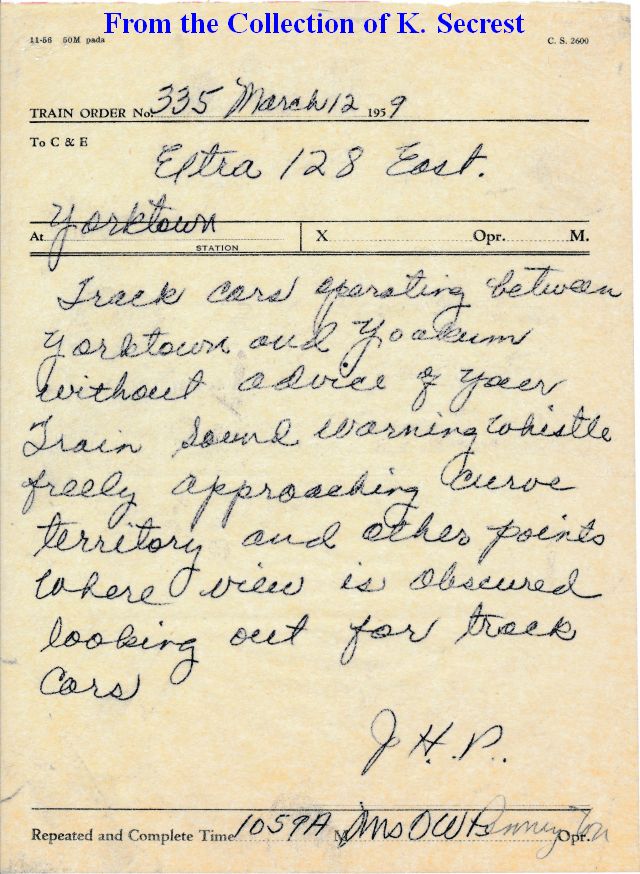 From the Collection of K. Secrest
11-56 50M pads C. S. 2600
TRAIN ORDER No. 335 March 12 1959
To C & E
Extra 128 East.
At Yorktown X Opr. M.
STATION
Track cars operating between
Yorktown and Yoakum
without advice of your
Train Sound warning whistle
freely approaching curve
territory and other points
where view is obscured
looking out for track
cars
J. H. P.
Repeated and Complete Time 1059A M Mrs O W Opr.